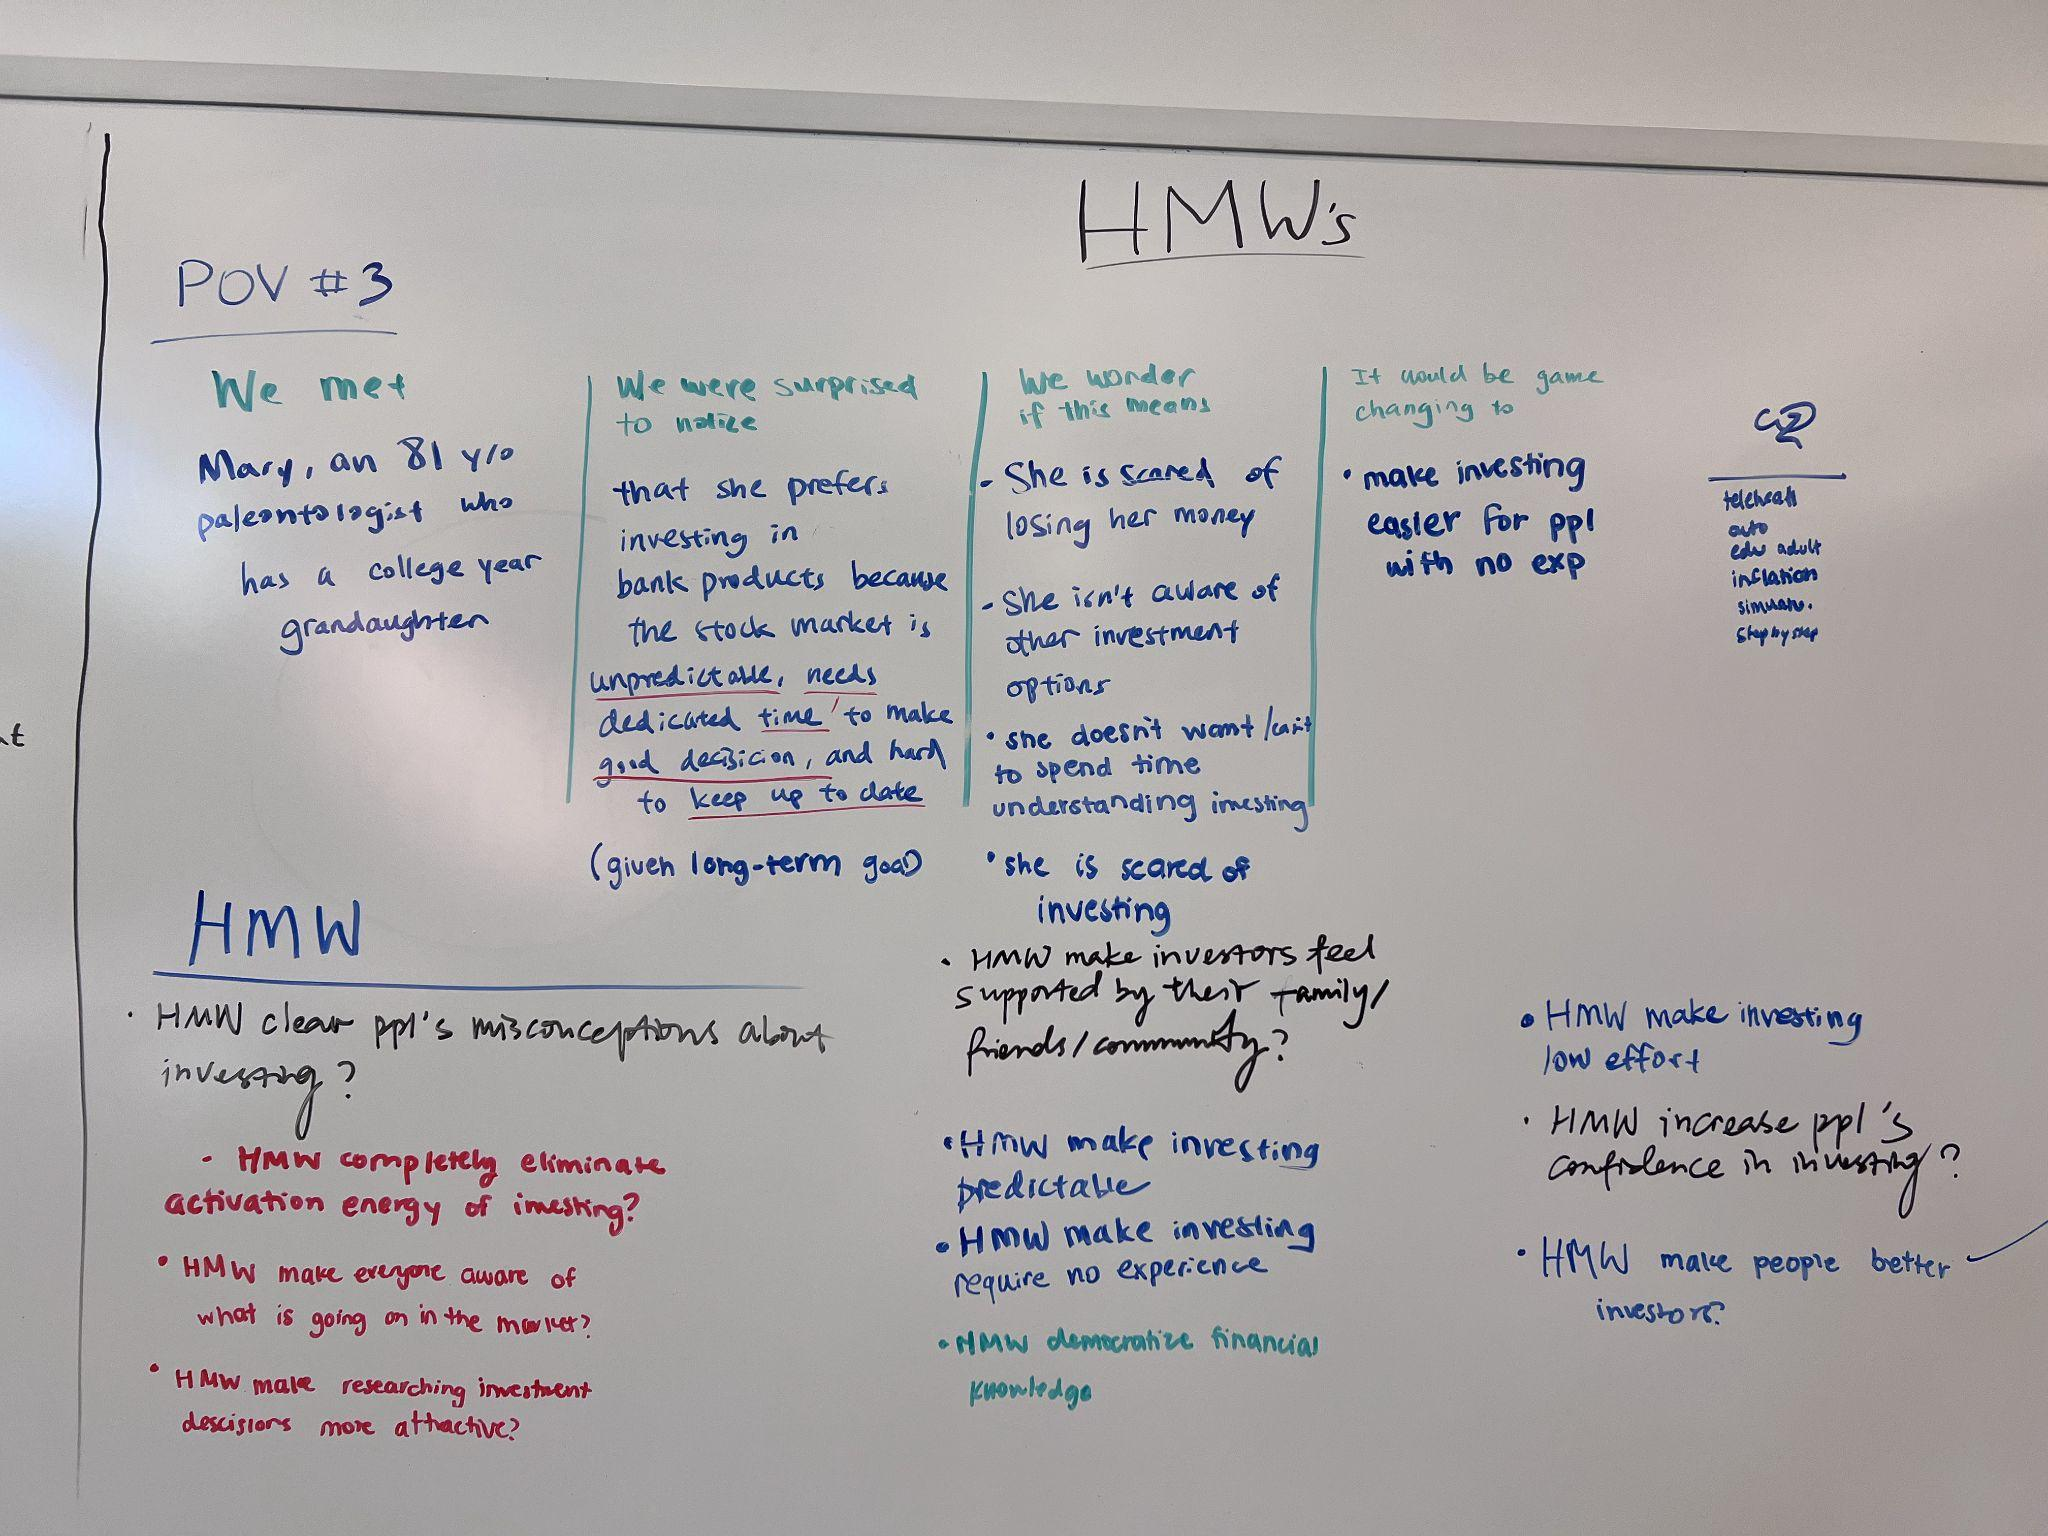 HMW's
POV #3
We met
Mary, an 81 y/o
paleontologist who
has a college year
grandaughter
We were surprised
to notice
that she prefers
investing in
bank products because
the stock market is
unpredictable, needs
dedicated time to make
good decisicion, and hard
to keep up to date
(given long-term goal)
We wonder
if this means
- She is scared of
losing her money
- She isn't aware of
other investment
options
• she doesn't want/can't
to spend time
understanding investing
• she is scared of
investing
It would be game
changing to
• make investing
easier for ppl
with no exp
auto
edu adult
inflation
step by step
at
HMW
• HMW clear ppl's misconceptions about
investing?
- HMW completely eliminate
activation energy of investing?
• HMW make everyone aware of
what is going on in the market?
• HMW make researching investment
descisions more attractive?
• HMW make investors feel
supported by their family/
friends/community?
• HMW make investing
predictable
• HMW make investing
require no experience
• HMW democratize financial
knowledge
• HMW make investing
low effort
• HMW increase ppl's
confidence in investing?
• HMW make people better
investors?